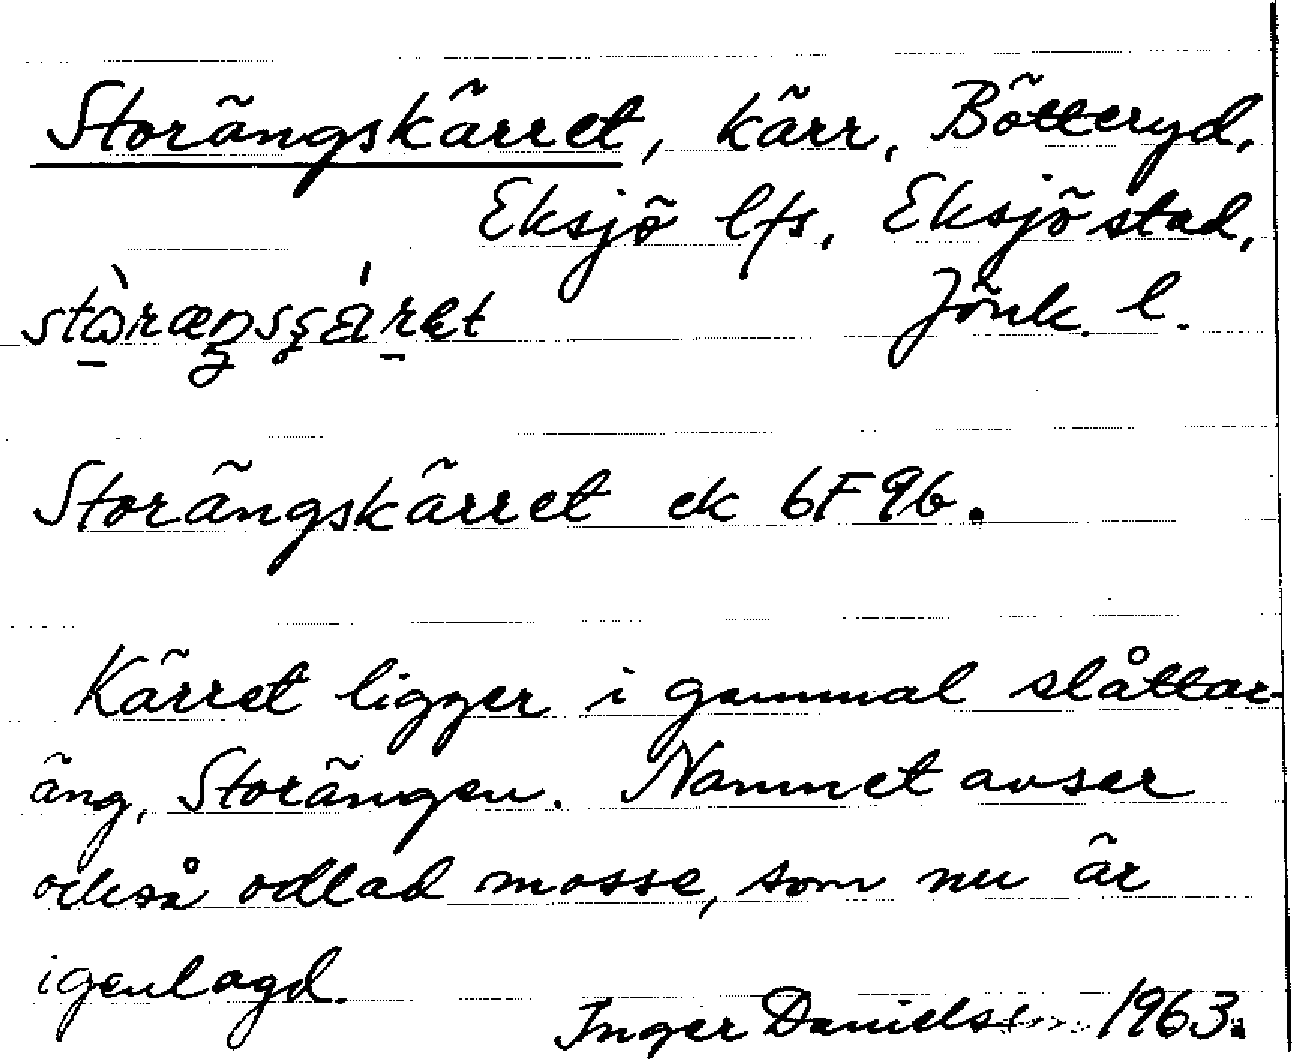 Storängskärret, kärr, Bötteryd,
Eksjö lfs, Eksjö stad,
Jönk. l.
Storängskärret ek 6F9b.
Kärret ligger i gammal slåtter-
äng, Storängen. Namnet avser
också odlad mosse, som nu är
igenlagd.
Inger Danielsson 1963.